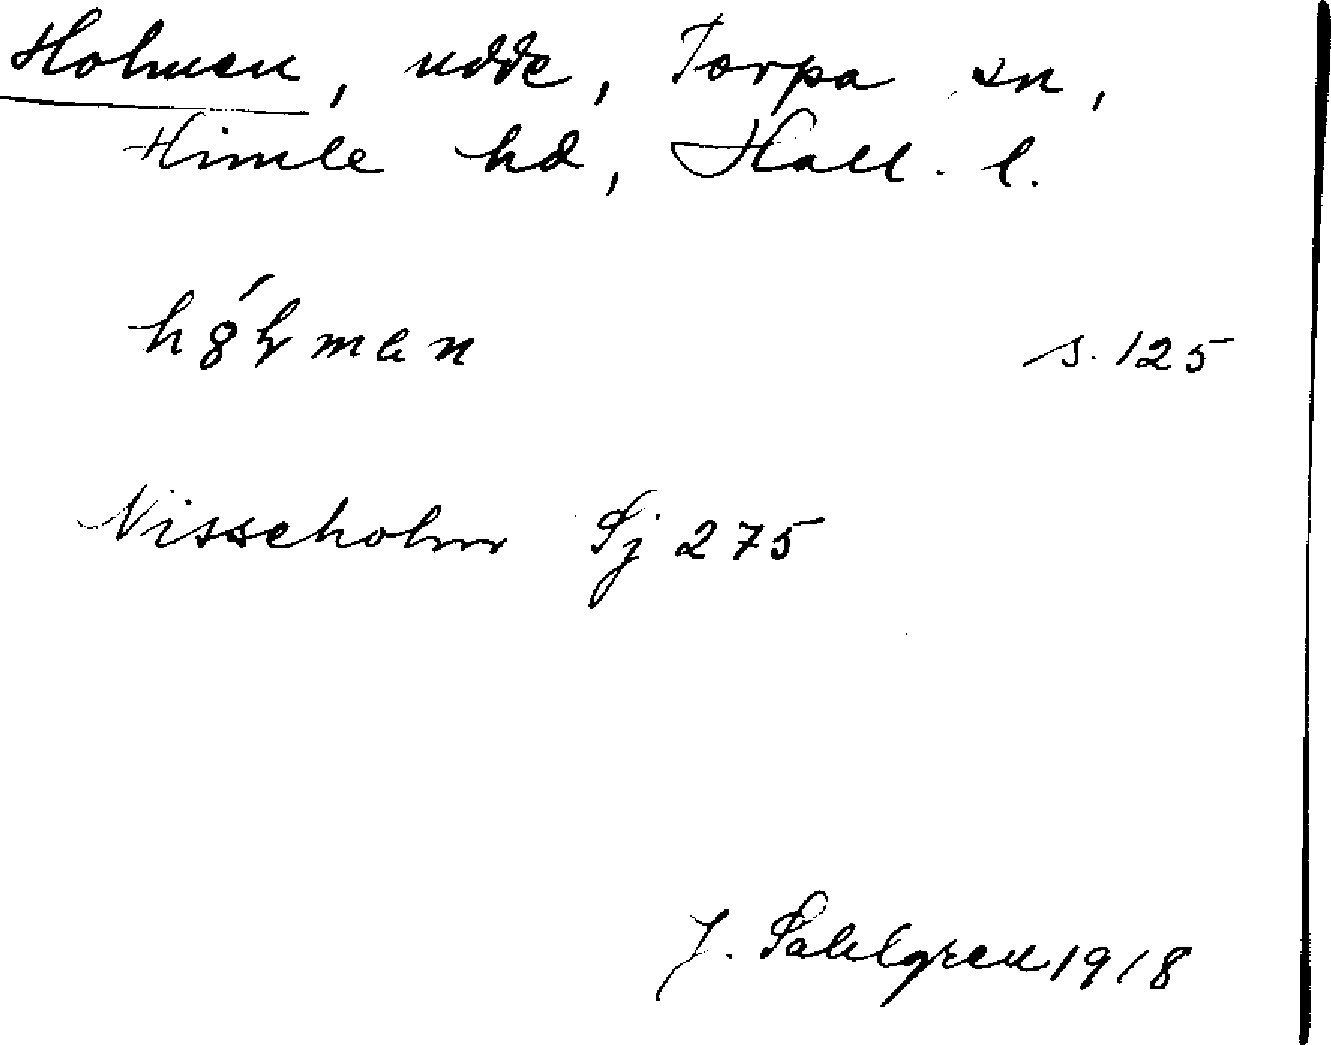 Holmen, udde, Torpa sn,
Himle hd, Hall. l.
s. 125
Nisseholm Sj 275
J. Sahlgren 1918